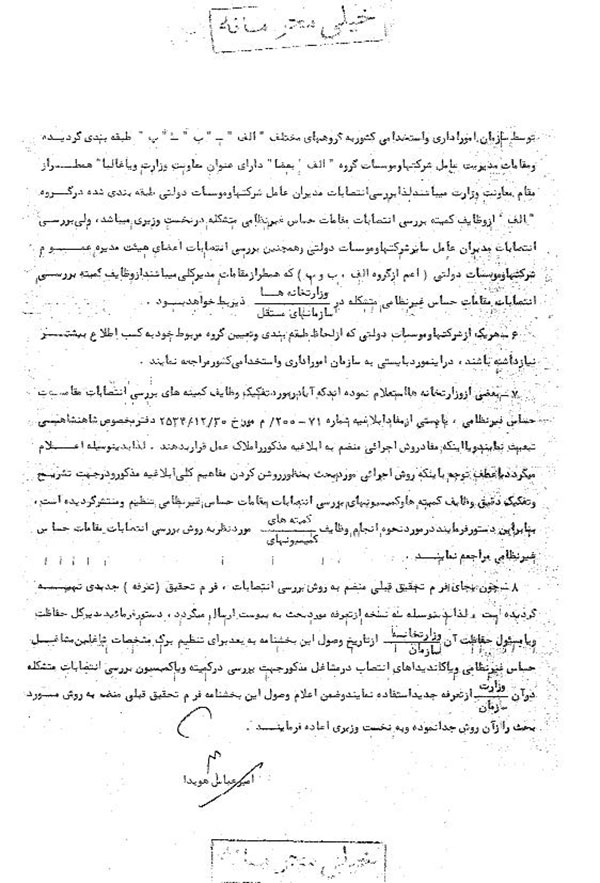 خیلی محرمانه
توسط سازمان امور اداری و استخدامی کشور به گروههای مختلف "الف" ـ "ب" ـ "پ" طبقه بندی گردیده
و مقامات مدیریت عامل شرکتها و موسسات گروه "الف" بعضا" دارای عنوان معاونت وزارت و یا غالبا" همطراز
مقام معاونت وزارت میباشند لذا بررسی انتصابات مدیران عامل شرکتها و موسسات دولتی طبقه بندی شده در گروه
"الف" از وظایف کمیته بررسی انتصابات مقامات حساس غیرنظامی متشکله در نخست وزیری میباشد، ولی بررسی
انتصابات مدیران عامل سایر شرکتها و موسسات دولتی و همچنین بررسی انتصابات اعضای هیئت مدیره عموم
شرکتها و موسسات دولتی (اعم از گروه الف، ب و پ) که همطراز مقامات مدیرکلی میباشند از وظایف کمیته بررسی
انتصابات مقامات حساس غیرنظامی متشکله در وزارتخانه ها / سازمانهای مستقل ذیربط خواهد بود.
۶ ـ هریک از شرکتها و موسسات دولتی که از لحاظ طبقه بندی و تعیین گروه مربوط خود به کسب اطلاع بیشتر
نیاز داشته باشند، در اینمورد بایستی به سازمان امور اداری و استخدامی کشور مراجعه نمایند.
۷ ـ بعضی از وزارتخانه ها استعلام نموده اند که آیا در مورد تفکیک وظایف کمیته های بررسی انتصابات مقامات
حساس غیرنظامی، بایستی از مفاد ابلاغیه شماره ۷۱-۲۰۰/م مورخ ۲۵۳۴/۱۲/۳۰ دفتر مخصوص شاهنشاهی
تبعیت نمایند و یا اینکه مفاد روش اجرائی منضم به ابلاغیه مذکور را ملاک عمل قرار دهند. لذا بدینوسیله اعلام
میگردد با عطف توجه باینکه روش اجرائی مورد بحث بمنظور روشن کردن مفاهیم کلی ابلاغیه مذکور و در جهت تشریح
و تفکیک دقیق وظایف کمیته ها و کمیسیونهای بررسی انتصابات مقامات حساس غیرنظامی تنظیم و منتشر گردیده است،
بنابراین دستور فرمایند در مورد نحوه انجام وظایف کمیته های / کمیسیونهای مورد نظر به روش بررسی انتصابات مقامات حساس
غیرنظامی مراجعه نمایند.
۸ ـ چون بجای فرم تحقیق قبلی منضم به روش بررسی انتصابات، فرم تحقیق (تعرفه) جدیدی تهیه
گردیده است. لذا بدینوسیله سه نسخه از تعرفه مورد بحث به پیوست ارسال میگردد، دستور فرمائید مدیر کل حفاظت
و یا مسئول حفاظت آن وزارتخانه / سازمان از تاریخ وصول این بخشنامه به بعد برای تنظیم برگ مشخصات شاغلین مشاغل
حساس غیرنظامی و یا کاندیداهای انتصاب در مشاغل مذکور جهت بررسی در کمیته و یا کمیسیون بررسی انتصابات متشکله
در آن وزارت / سازمان از تعرفه جدید استفاده نمایند و ضمن اعلام وصول این بخشنامه فرم تحقیق قبلی منضم به روش مورد
بحث را از آن روش جدا نموده و به نخست وزیری اعاده فرمایند.
امیرعباس هویدا
خیلی محرمانه